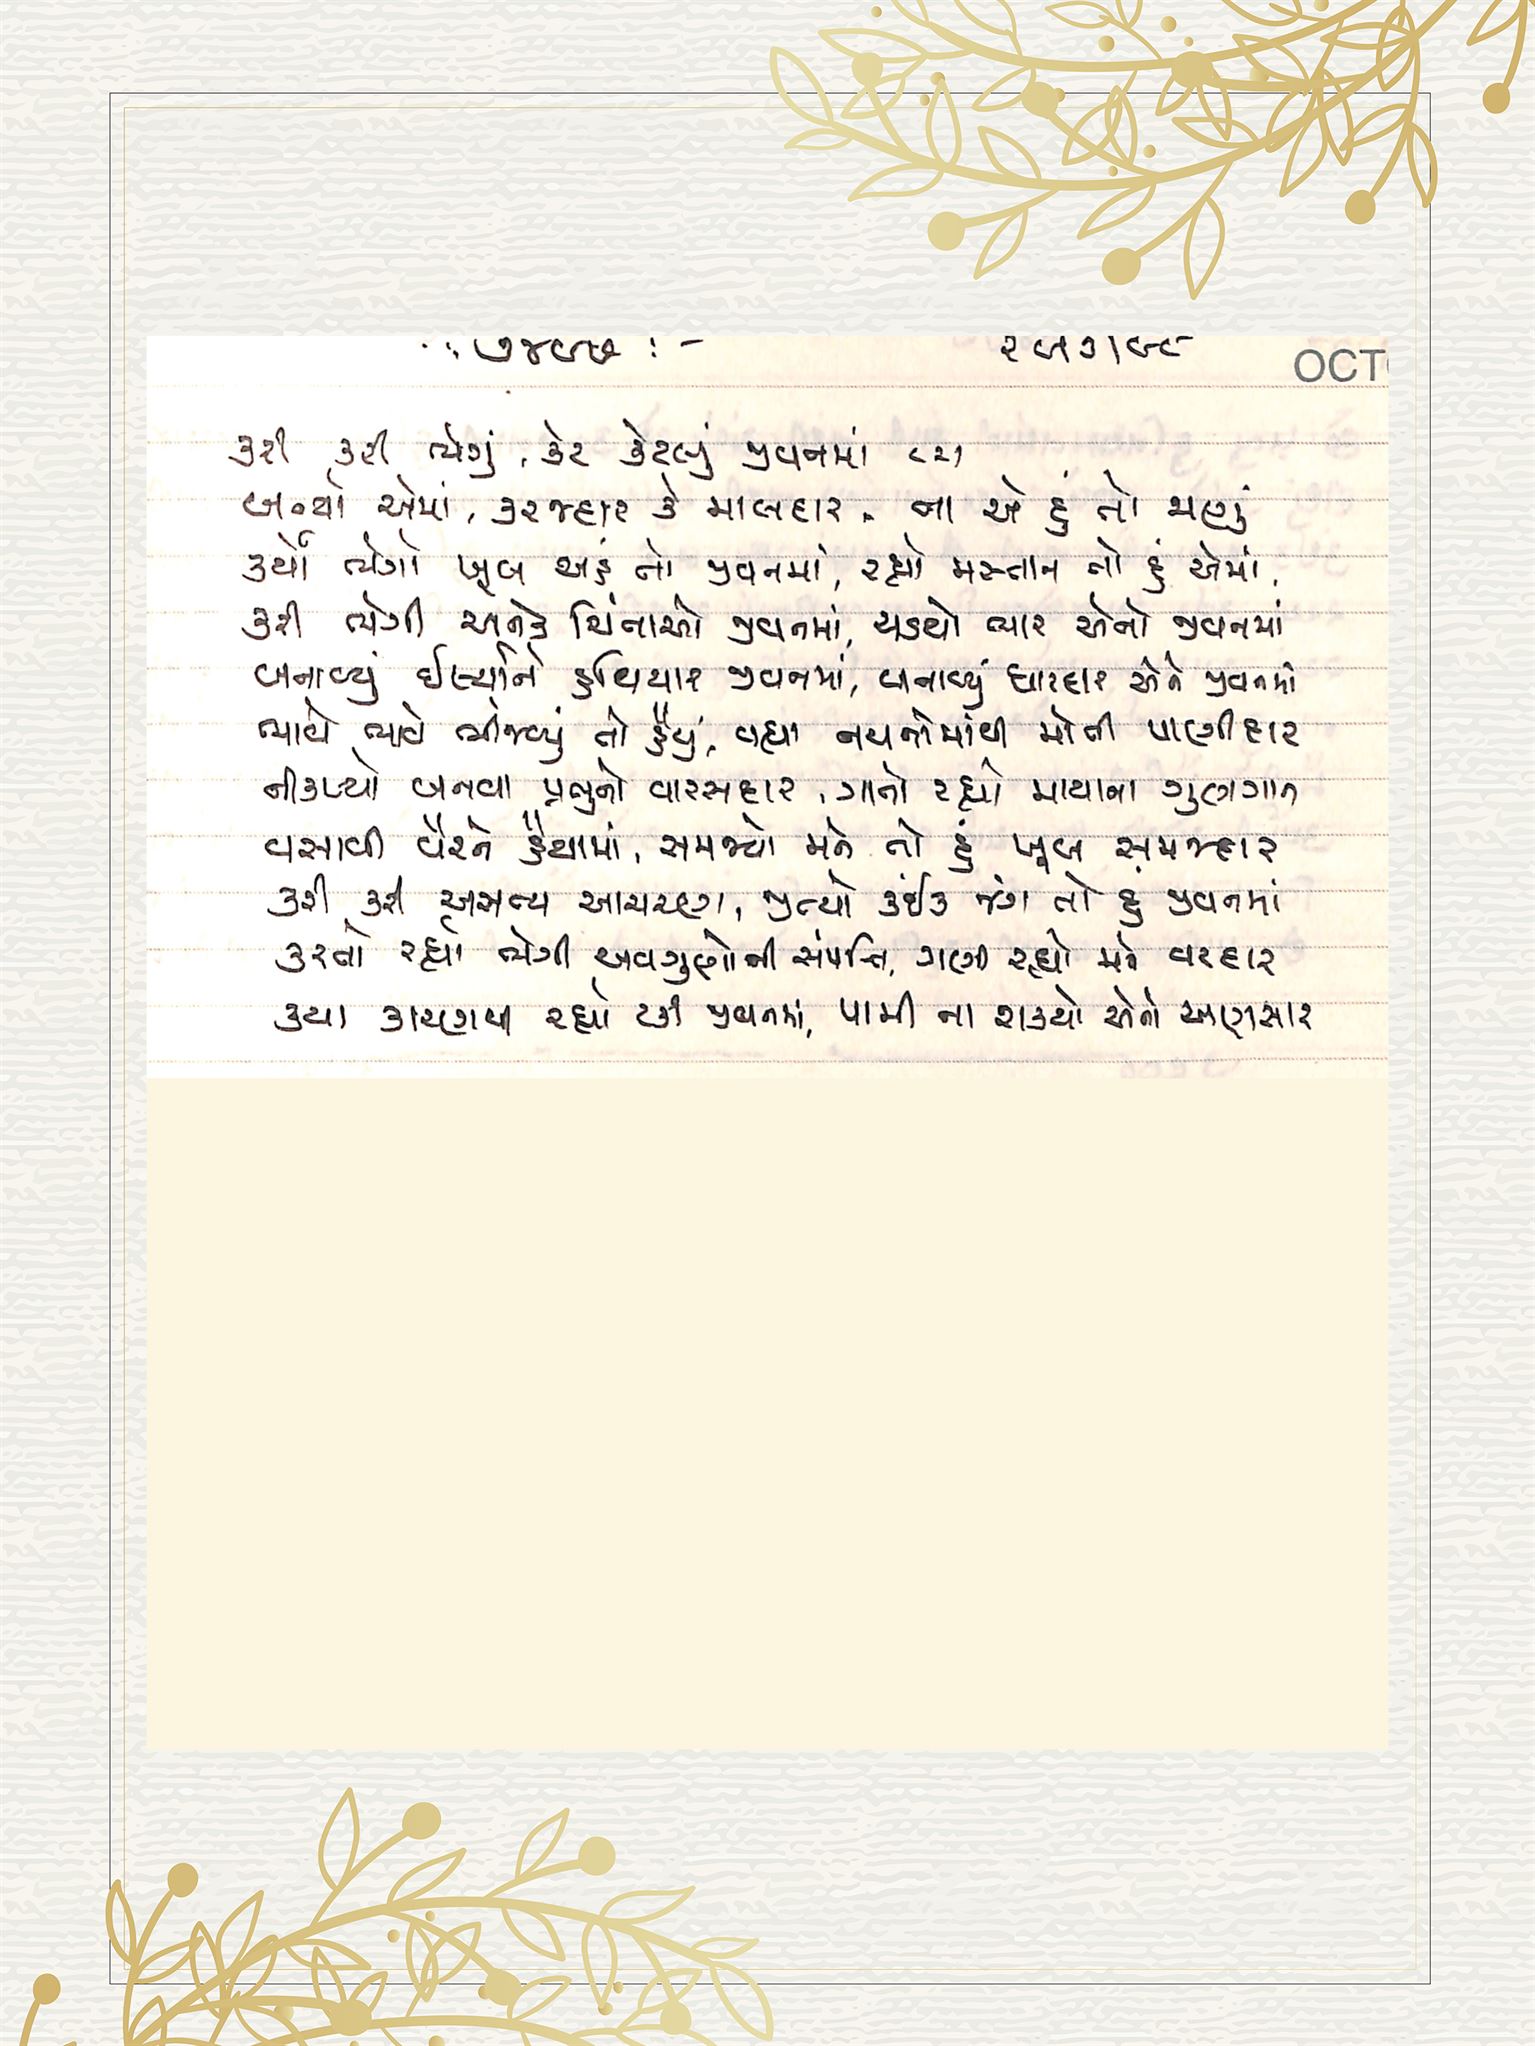 OCT
કરી કરી ભેગું, કેર કેટલું જીવનમાં
બન્યો એમાં, કરજદાર કે માલદાર, ના એ હું તો જાણું
કર્યો ભેગો ખૂબ અહં તો જીવનમાં, રહ્યો મસ્તાન તો હું એમાં,
કરી ભેગી અનેક ચિંતાઓ જીવનમાં, ચડયો ભાર એનો જીવનમાં
બનાવ્યું ઈર્ષ્યાને હથિયાર જીવનમાં, બનાવ્યું ધારદાર એને જીવનમાં
ભાવે ભાવે ભીંજવ્યું તો હૈયું, વહ્યા નયનોમાંથી મોતી પાણીદાર
નીકળ્યો બનવા પ્રભુનો વારસદાર, ગાતો રહ્યો માયાના ગુણગાન
વસાવી વૈરને હૈયામાં, સમજ્યો મને તો હું ખૂબ સમજદાર
કરી કરી અસત્ય આચરણ, જીત્યો કંઈક જંગ તો હું જીવનમાં
કરતો રહ્યો ભેગી અવગુણોની સંપત્તિ, ગણી રહ્યો મને
કયા કારણથી રહ્યો ટકી જીવનમાં, પામી ના શક્યો એનો અણસાર